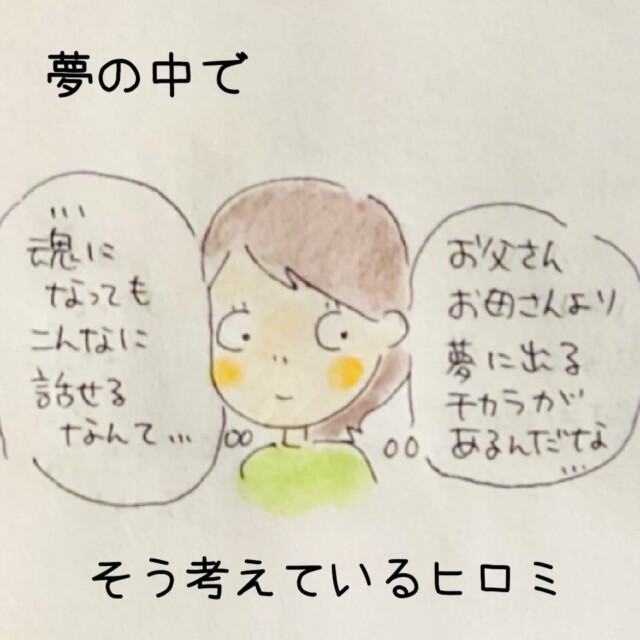 夢の中で
お父さん
お母さんより
夢に出る
チカラが
あるんだな
...
...
魂に
なっても
こんなに
話せる
なんて...
そう考えているヒロミ